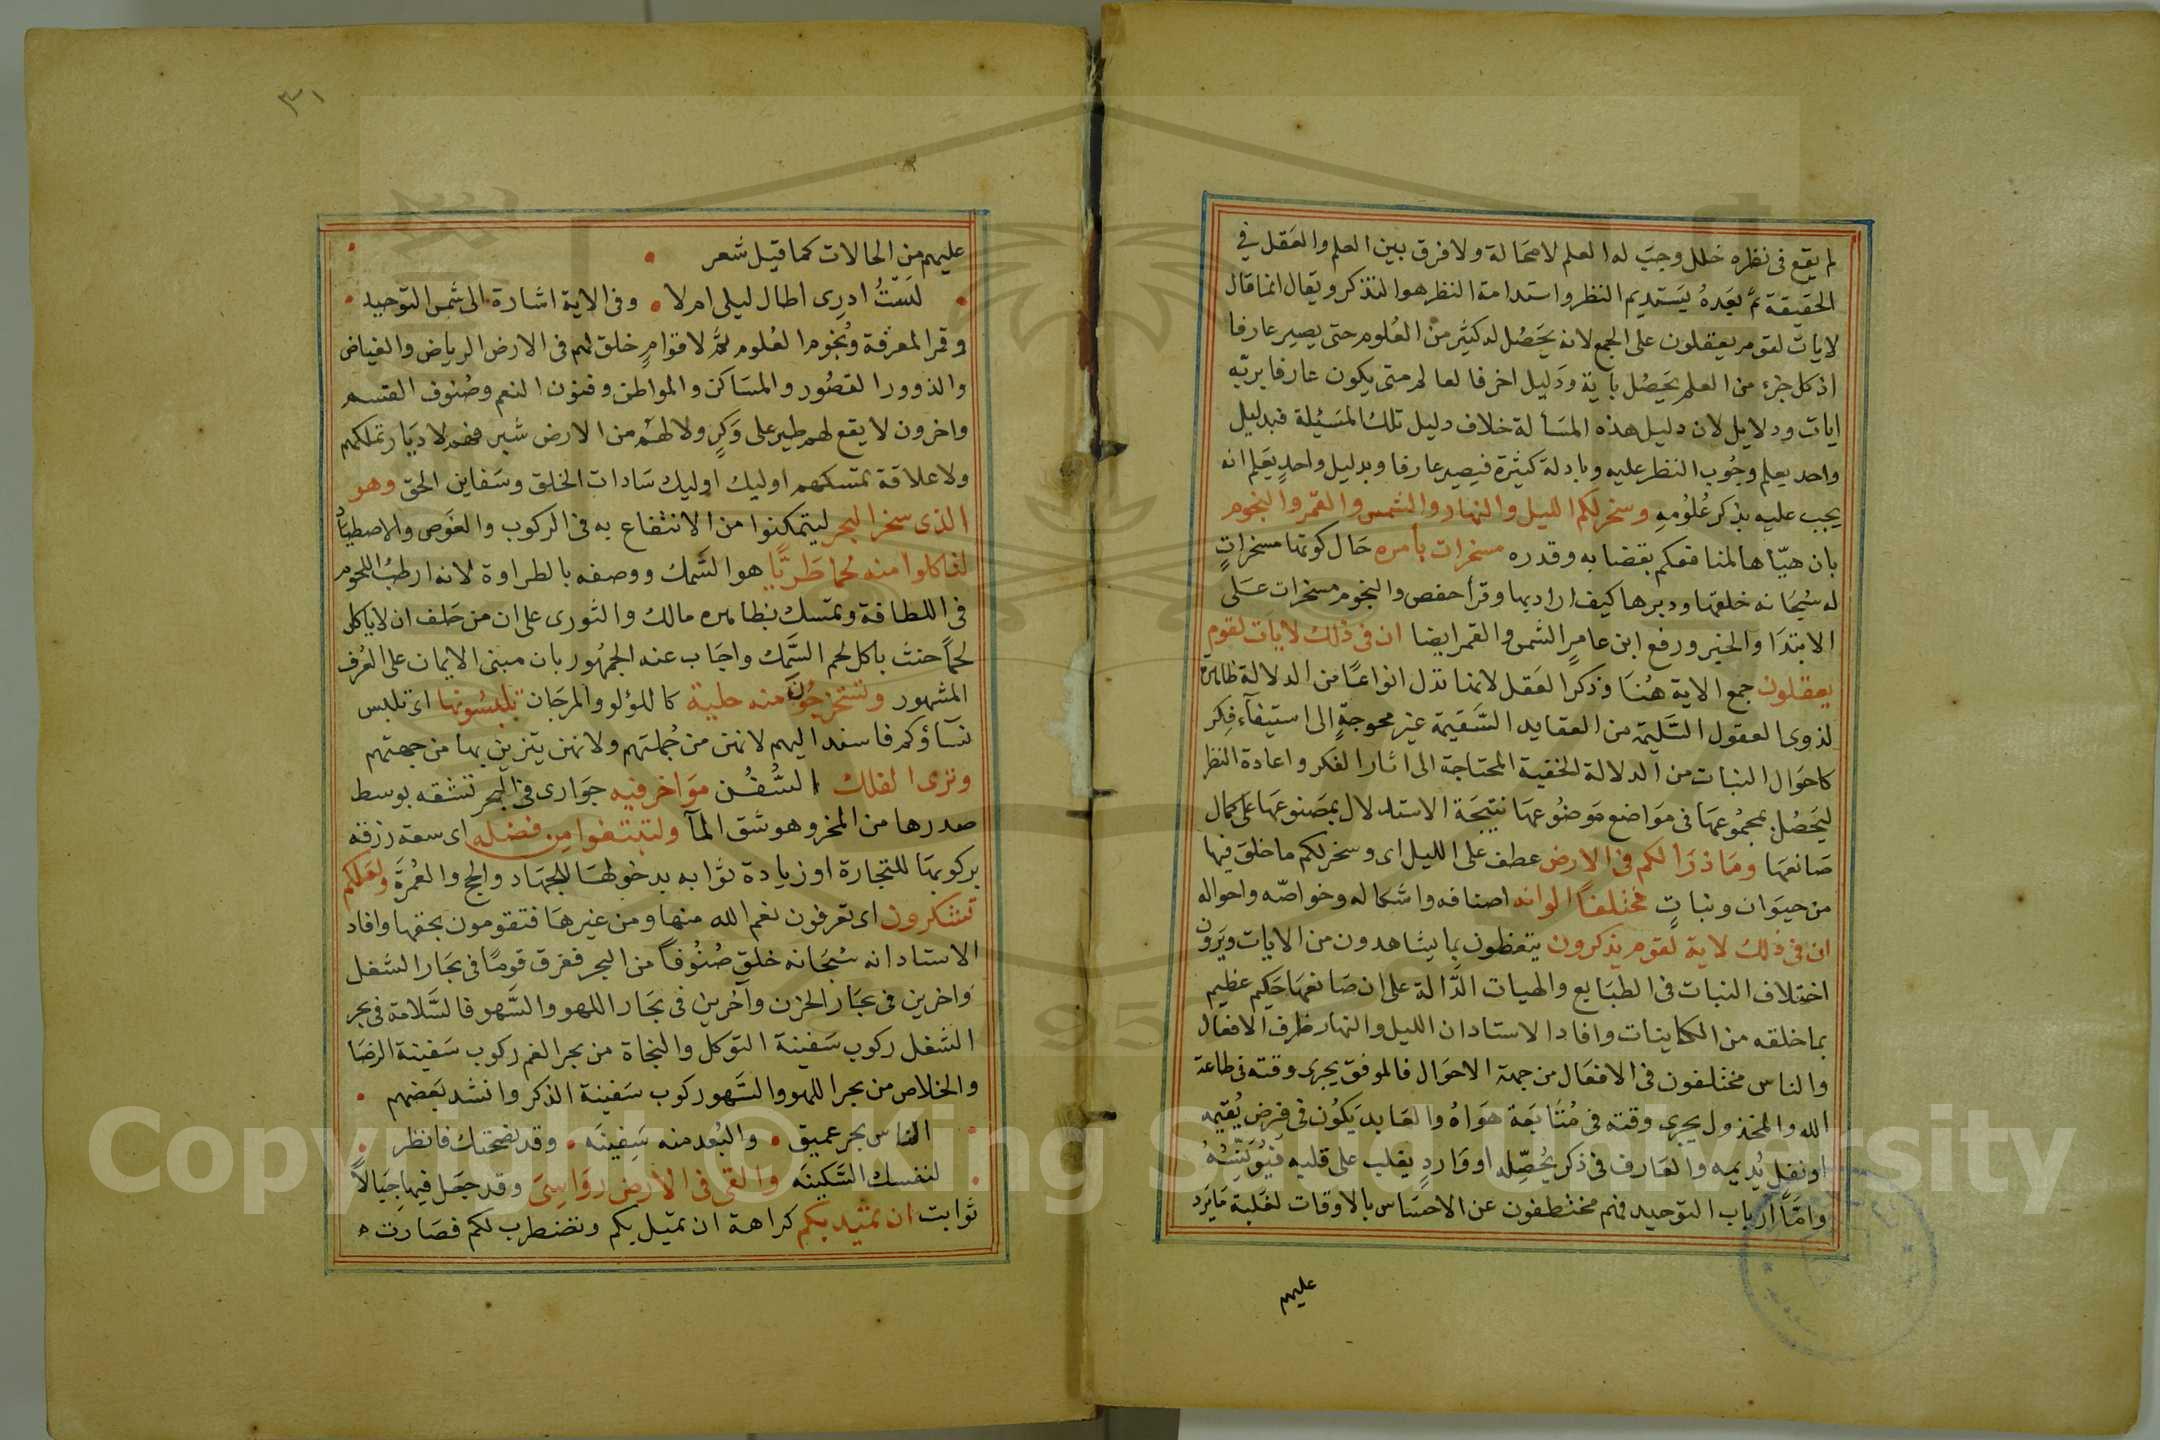 لم يقع فى نظره خلل وجبَ له العلم لامحالة ولا فرق بين العلم والعقل في
الحقيقة ثم بعدهُ يستديم النظر واستدامة النظر هو التذكر ويقال انما قال
لايات لقوم يعقلون على الجمع لانه يحصُل له كثير من العُلوم حتى يصير عارفا
اذ كل جزء من العلم يحصُل باية ودليل اخر فالعالم متى يكون عارفا بربّه
ايات ودلايل لان دليل هذه المسألة خلاف دليل تلك المسئلة فبدليل
واحد يعلم وجُوب النظر عليه وبادلة كثيرة فيصير عارفا وبدليل واحدٍ يعَلم انه
يجب عليه بذكر عُلُومهِ وسخر لكم الليل والنهار والشمس والقمر والنجوم
بان هيّاها لمنافعكم بقضايه وقدره مسخرات بأمره حَال كونها مسخراتٍ
له سُبحَانه خلقها ودبرها كيف ارادبها وقرأ حفص والنجوم مسخرات عَلَى
الابتدَا والخبر ورفع ابن عامرٍ الشمس والقمر ايضا ان فى ذلك لايَات لقوم
يعقلون جمع الاية هُنَا وذكر العَقل لانها تدل انواعًا من الدلالة ظاهرة
لذوى العقول السَّليمة من العقايد السَّقيمة غير محوجةٍ الى استيفآء فكر
كاحوَال النبات من الدلالة الخفية المحتاجة الى اثار الفكر واعادة النظر
ليَحصُل بمجموعهَا فى موَاضع موَضُوعهَا نتيجَة الاستدلال بمصَنوعهَا على كمال
صَانعهَا ومَا ذرَا لكم فى الارض عطف على الليل اى وسخر لكم ما خلق فيها
من حيوَان ونباتٍ مختلفًا الوانه اصنافه واشكاله وخواصّه واحواله
ان فى ذلك لاية لقوم يذكرون يتعظون بما يشاهدون من الايات ويرَون
اختلاف النبات فى الطبَايع والهيات الدَّالة على ان صَانعهَا حَكيم عظيم
بما خلقه من الكاينات وافاد الاستاد ان الليل والنهار ظرف الافعَال
والناس مختلفون فى الافعَال من جهة الاحوَال فالموفق يجرى وقته فى طاعة
الله والمخذول يجرى وقته فى مُتَابعَة هوَاهُ والعَابد يَكُون فى فرض يُقيمه
او نفل يُديمه والعَارف فى ذكر يُحصِّله او وَاردٍ يغلب على قلبه فيُوَنِّسُهُ
وامَّا ارباب التوّحيد فهم مختطفون عن الاحسَاس بالاوقات لغلبة مَا يَرد
عليهم
٣١
عليهم من الحالات كما قيل شعر
لَسْتُ ادرِى اطال ليلى ام لا وفى الاية اشارة الى شمس التوّحيد
وقمر المعرفة ونُجوم العُلوم ثم لاقوامٍ خلق لهم فى الارض الرياض والغياض
والدوور القصُور والمسَاكن والمواطن وفنون النعم وصُنوف القسم
واخرون لا يقع لهم طير على وَكرٍ ولا لهُم من الارض شبر فهم لا ديَار تملكهم
ولا علاقة تمسكهم اوليك اوليك سَادات الخلق وسَفاين الحق وهو
الذى سخر البحر ليتمكنوا من الانتفاع به فى الركوب والغوَص والاصطياد
لتاكلوا منه لحما طَريًّا هو السَّمك ووصفه بالطراوة لانه ارطبُ اللحوم
فى اللطافة وتمسك بظاهره مالك والثورى على ان من حَلف ان لا ياكل
لحمًا حنث باكل لحم السَّمك واجَاب عنه الجمهُور بان مبنى الايمان على العُرف
المشهور وتستخرجُون منه حلية كاللؤلو والمرجَان تلبسُونها اى تلبس
نسَآؤكم فاسند اليهم لانهن من جُملتهم ولانهن يتزين بها من جهتهم
وترى الفلك السُّفُن موَاخر فيه جوَارى فى البحر تشقه بوسط
صدرها من المخر وهو شق المآ ولتبتغوا مِن فضله اى سعة رزقه
بركوبهَا للتجارة او زيادة ثوابه بدخولهَا للجهاد والحج والعُمرَة ولعَلكم
تشكرون اى تعرفون نعم الله منها ومن غيرهَا فتقومون بحقها وافاد
الاستاد انه سُبحَانه خلق صُنُوفًا من البحر فغرق قومًا فى بحَار الشغل
وَاخرين فى بحَار الحزن وآخرين فى بحَار اللهو والسَّهو فالسَّلامة فى بحر
الشغل ركوب سَفينة التوكل والنجاة من بحر الغم ركوب سَفينة الرضَا
والخلاص من بحر اللهو والسَّهو ركوب سَفينة الذكر وانشد بَعضهم
الناس بحر عميق والبُعد منه سَفِينَه وقد نصَحتك فانظر
لنفسك السَّكينَه والقى فى الارض روَاسِىَ وقد جعَل فيها جبَالاً
ثوابت ان تميد بكم كراهة ان تميل بكم وتضطرب لكم فصَارت
Copyright © King Saud University